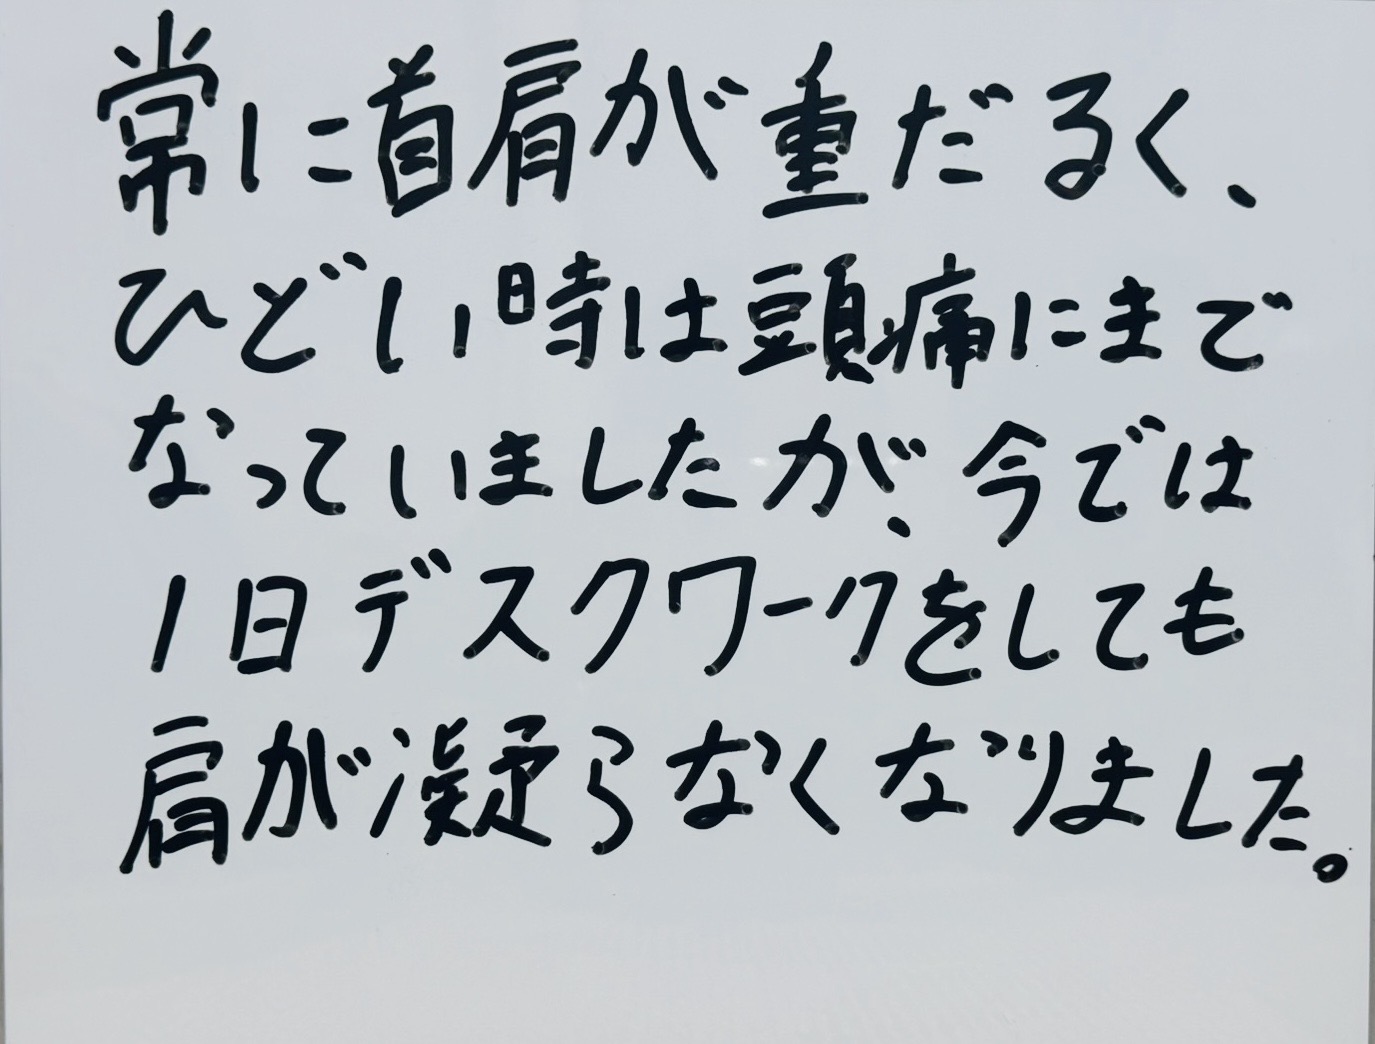 常に首肩が重だるく、
ひどい時は頭痛にまで
なっていましたが、今では
1日デスクワークをしても
肩が凝らなくなりました。